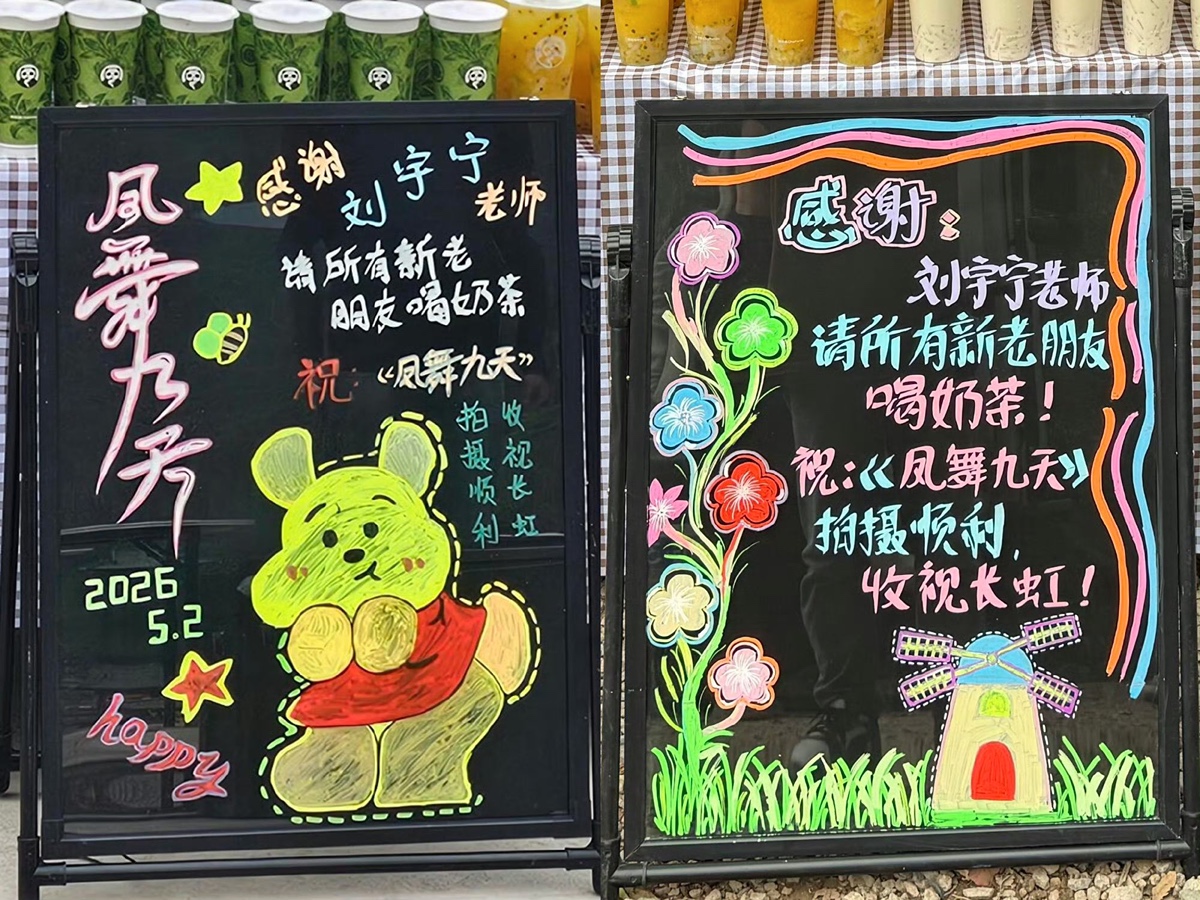 凤舞九天
感谢刘宇宁老师
请所有新老
朋友喝奶茶
祝:《凤舞九天》
拍摄顺利
收视长虹
2026
5.2
happy
感谢:
刘宇宁老师
请所有新老朋友
喝奶茶!
祝:《凤舞九天》
拍摄顺利,
收视长虹!